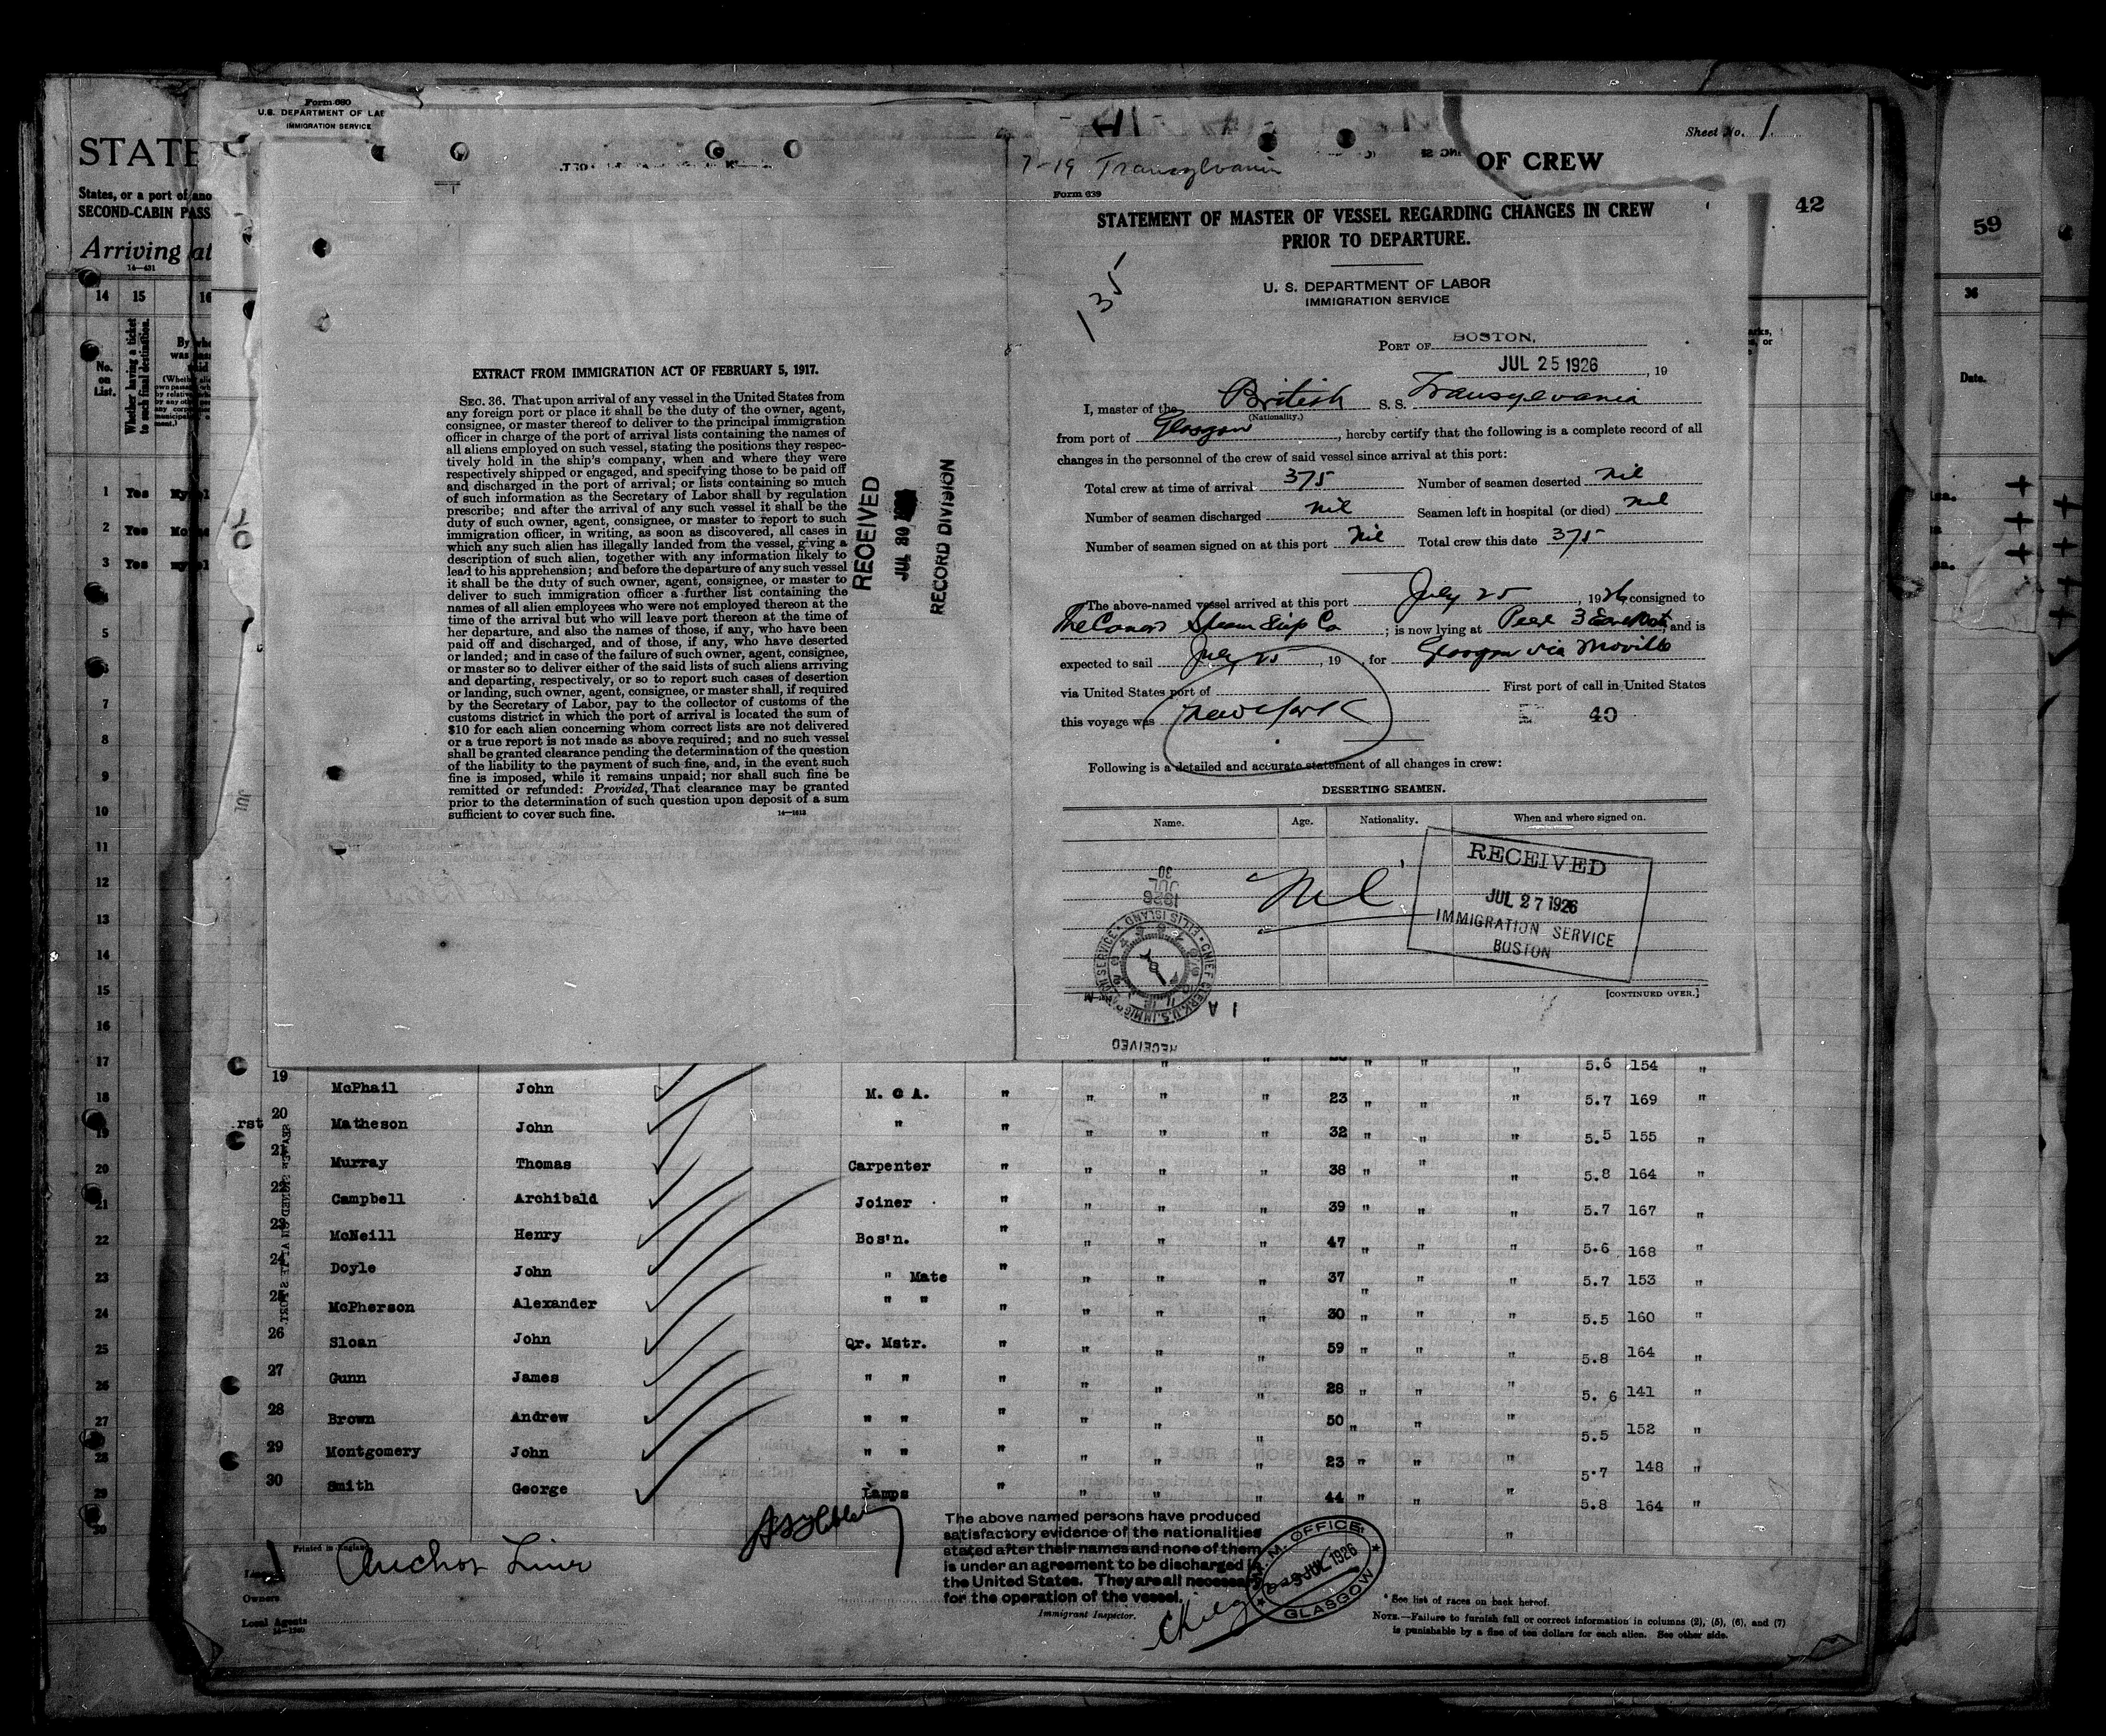 Form 680
U.S. DEPARTMENT OF LA
IMMIGRATION SERVICE
STATE
States, or a port of ano
SECOND-CABIN PASS
Arriving at
14—431
14 15 16
No. on List.
Whether having a ticket to such final destination.
1 Yes
2 Yes
3 Yes
5
6
7
8
9
10
11
12
13
14
15
16
17
18
19
20
21
22
23
24
25
26
27
28
29
30
EXTRACT FROM IMMIGRATION ACT OF FEBRUARY 5, 1917.
SEC. 36. That upon arrival of any vessel in the United States from
any foreign port or place it shall be the duty of the owner, agent,
consignee, or master thereof to deliver to the principal immigration
officer in charge of the port of arrival lists containing the names of
all aliens employed on such vessel, stating the positions they respec-
tively hold in the ship's company, when and where they were
respectively shipped or engaged, and specifying those to be paid off
and discharged in the port of arrival; or lists containing so much
of such information as the Secretary of Labor shall by regulation
prescribe; and after the arrival of any such vessel it shall be the
duty of such owner, agent, consignee, or master to report to such
immigration officer, in writing, as soon as discovered, all cases in
which any such alien has illegally landed from the vessel, giving a
description of such alien, together with any information likely to
lead to his apprehension; and before the departure of any such vessel
it shall be the duty of such owner, agent, consignee, or master to
deliver to such immigration officer a further list containing the
names of all alien employees who were not employed thereon at the
time of the arrival but who will leave port thereon at the time of
her departure, and also the names of those, if any, who have been
paid off and discharged, and of those, if any, who have deserted
or landed; and in case of the failure of such owner, agent, consignee,
or master so to deliver either of the said lists of such aliens arriving
and departing, respectively, or so to report such cases of desertion
or landing, such owner, agent, consignee, or master shall, if required
by the Secretary of Labor, pay to the collector of customs of the
customs district in which the port of arrival is located the sum of
$10 for each alien concerning whom correct lists are not delivered
or a true report is not made as above required; and no such vessel
shall be granted clearance pending the determination of the question
of the liability to the payment of such fine, and, in the event such
fine is imposed, while it remains unpaid; nor shall such fine be
remitted or refunded: Provided, That clearance may be granted
prior to the determination of such question upon deposit of a sum
sufficient to cover such fine.
14—1613
RECEIVED
JUL 30
RECORD DIVISION
Sheet No. 1
OF CREW
7-19 Transylvania
Form 689
STATEMENT OF MASTER OF VESSEL REGARDING CHANGES IN CREW
PRIOR TO DEPARTURE.
135
U. S. DEPARTMENT OF LABOR
IMMIGRATION SERVICE
PORT OF BOSTON,
JUL 25 1926, 19
I, master of the British S. S. Transylvania
(Nationality.)
from port of Glasgow, hereby certify that the following is a complete record of all
changes in the personnel of the crew of said vessel since arrival at this port:
Total crew at time of arrival 375 Number of seamen deserted nil
Number of seamen discharged nil Seamen left in hospital (or died) nil
Number of seamen signed on at this port Nil Total crew this date 375
The above-named vessel arrived at this port July 25, 1926, consigned to
The Steam Ship Co; is now lying at 3 and is
expected to sail July 25, 19 , for Glasgow via Moville
via United States port of First port of call in United States
this voyage was New York
40
Following is a detailed and accurate statement of all changes in crew:
DESERTING SEAMEN.
Name. Age. Nationality. When and where signed on.
Nil
RECEIVED
JUL 27 1926
IMMIGRATION SERVICE
BOSTON
CHIEF CLERK, U.S. IMMIGRATION SERVICE ELLIS ISLAND
1926
JUL
30
RECEIVED
[CONTINUED OVER.]
42
59
36
Date.
5.6 154 "
19 McPhail John M. C A. " " " " 23 " " " 5.7 169 "
20 Matheson John " " " " " 32 " " " 5.5 155 "
21 Murray Thomas Carpenter " " " " 38 " " " 5.8 164 "
22 Campbell Archibald Joiner " " " " 39 " " " 5.7 167 "
23 McNeill Henry Bos'n. " " " " 47 " " " 5.6 168 "
24 Doyle John " Mate " " " " 37 " " " 5.7 153 "
25 McPherson Alexander " " " " " " 30 " " " 5.5 160 "
26 Sloan John Qr. Mstr. " " " " 59 " " " 5.8 164 "
27 Gunn James " " " " " " 28 " " " 5.6 141 "
28 Brown Andrew " " " " " " 50 " " " 5.5 152 "
29 Montgomery John " " " " " " 23 " " " 5.7 148 "
30 Smith George Lamps " " " " 44 " " " 5.8 164 "
Printed in England
Anchor Line
Owners
Local Agents
14—1240
The above named persons have produced
satisfactory evidence of the nationalities
stated after their names and none of them
is under an agreement to be discharged in
the United States. They are all necessary
for the operation of the vessel.
Immigrant Inspector.
M. M. OFFICE
JUL 1926
GLASGOW
* See list of races on back hereof.
NOTE.—Failure to furnish full or correct information in columns (2), (5), (6), and (7)
is punishable by a fine of ten dollars for each alien. See other side.